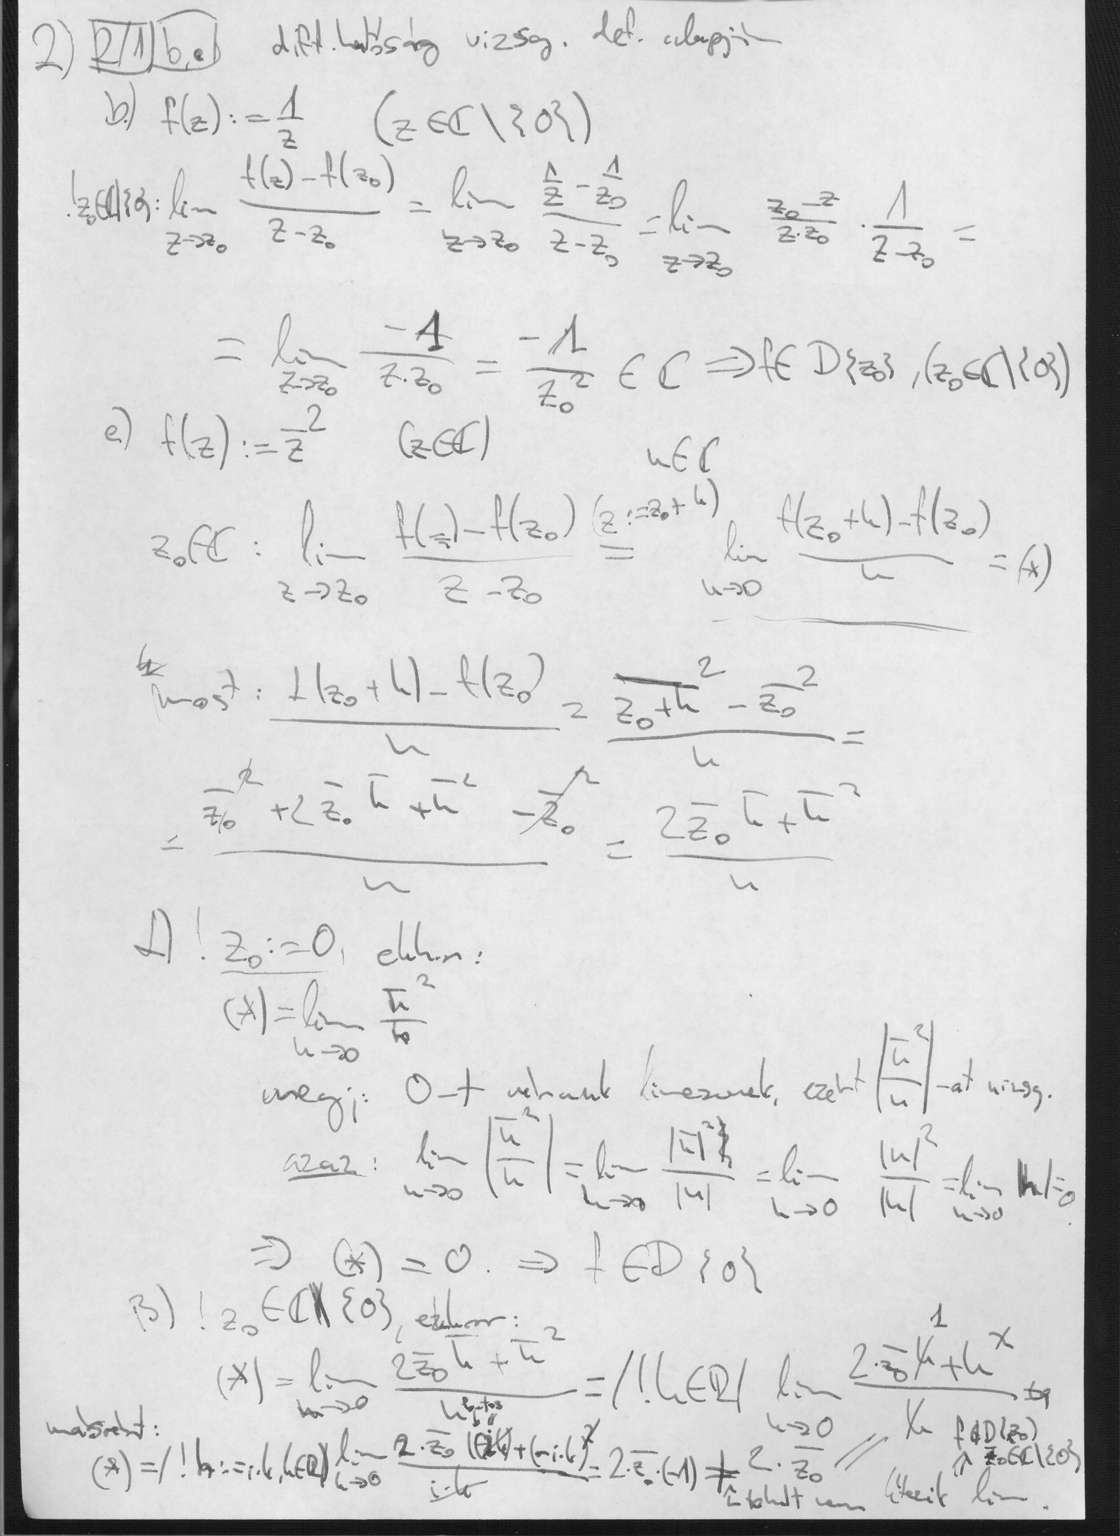 2) 2/1 b, e diff.hatóság vizsg. def. alapján
b.) f(z) := 1/z (z∈ℂ\{0})
!z₀∈ℂ\{0}: lim_{z→z₀} (f(z)-f(z₀))/(z-z₀) = lim_{z→z₀} (1/z - 1/z₀)/(z-z₀) = lim_{z→z₀} (z₀-z)/(z·z₀) · 1/(z-z₀) =
= lim_{z→z₀} -1/(z·z₀) = -1/z₀² ∈ ℂ ⇒ f∈D{z₀}, (z₀∈ℂ\{0})
e) f(z) := z̄² (z∈ℂ)
h∈ℂ
z₀∈ℂ: lim_{z→z₀} (f(z)-f(z₀))/(z-z₀) =^{(z:=z₀+h)} lim_{h→0} (f(z₀+h)-f(z₀))/h = (*)
most: (f(z₀+h)-f(z₀))/h = (\overline{z₀+h}² - z̄₀²)/h =
= (z̄₀² + 2z̄₀h̄ + h̄² - z̄₀²)/h = (2z̄₀h̄ + h̄²)/h
A) ! z₀ := 0, ekkor:
(*) = lim_{h→0} h̄²/h
megj: 0-t várunk limesznek, ezért |h̄²/h|-at vizsg.
azaz: lim_{h→0} |h̄²/h| = lim_{h→0} |h̄|²/|h| = lim_{h→0} |h|²/|h| = lim_{h→0} |h| = 0
⇒ (*) = 0. ⇒ f∈D{0}
B) ! z₀∈ℂ\{0}, ekkor:
(*) = lim_{h→0} (2z̄₀h̄ + h̄²)/h = /!h∈ℝ/ lim_{h→0} (2·z̄₀h + h²)/h
másrészt:
(*) = /!h:=i·k, k∈ℝ/ lim_{k→0} (2·z̄₀(-ik)+(-i·k)²)/(i·k) = 2·z̄₀·(-1) ≠ 2·z̄₀
f∉D{z₀}
z₀∈ℂ\{0}
tehát nem létezik lim.